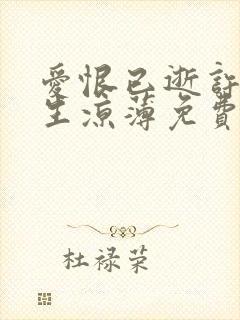 愛恨已逝許
生涼薄免費
杜祿荣